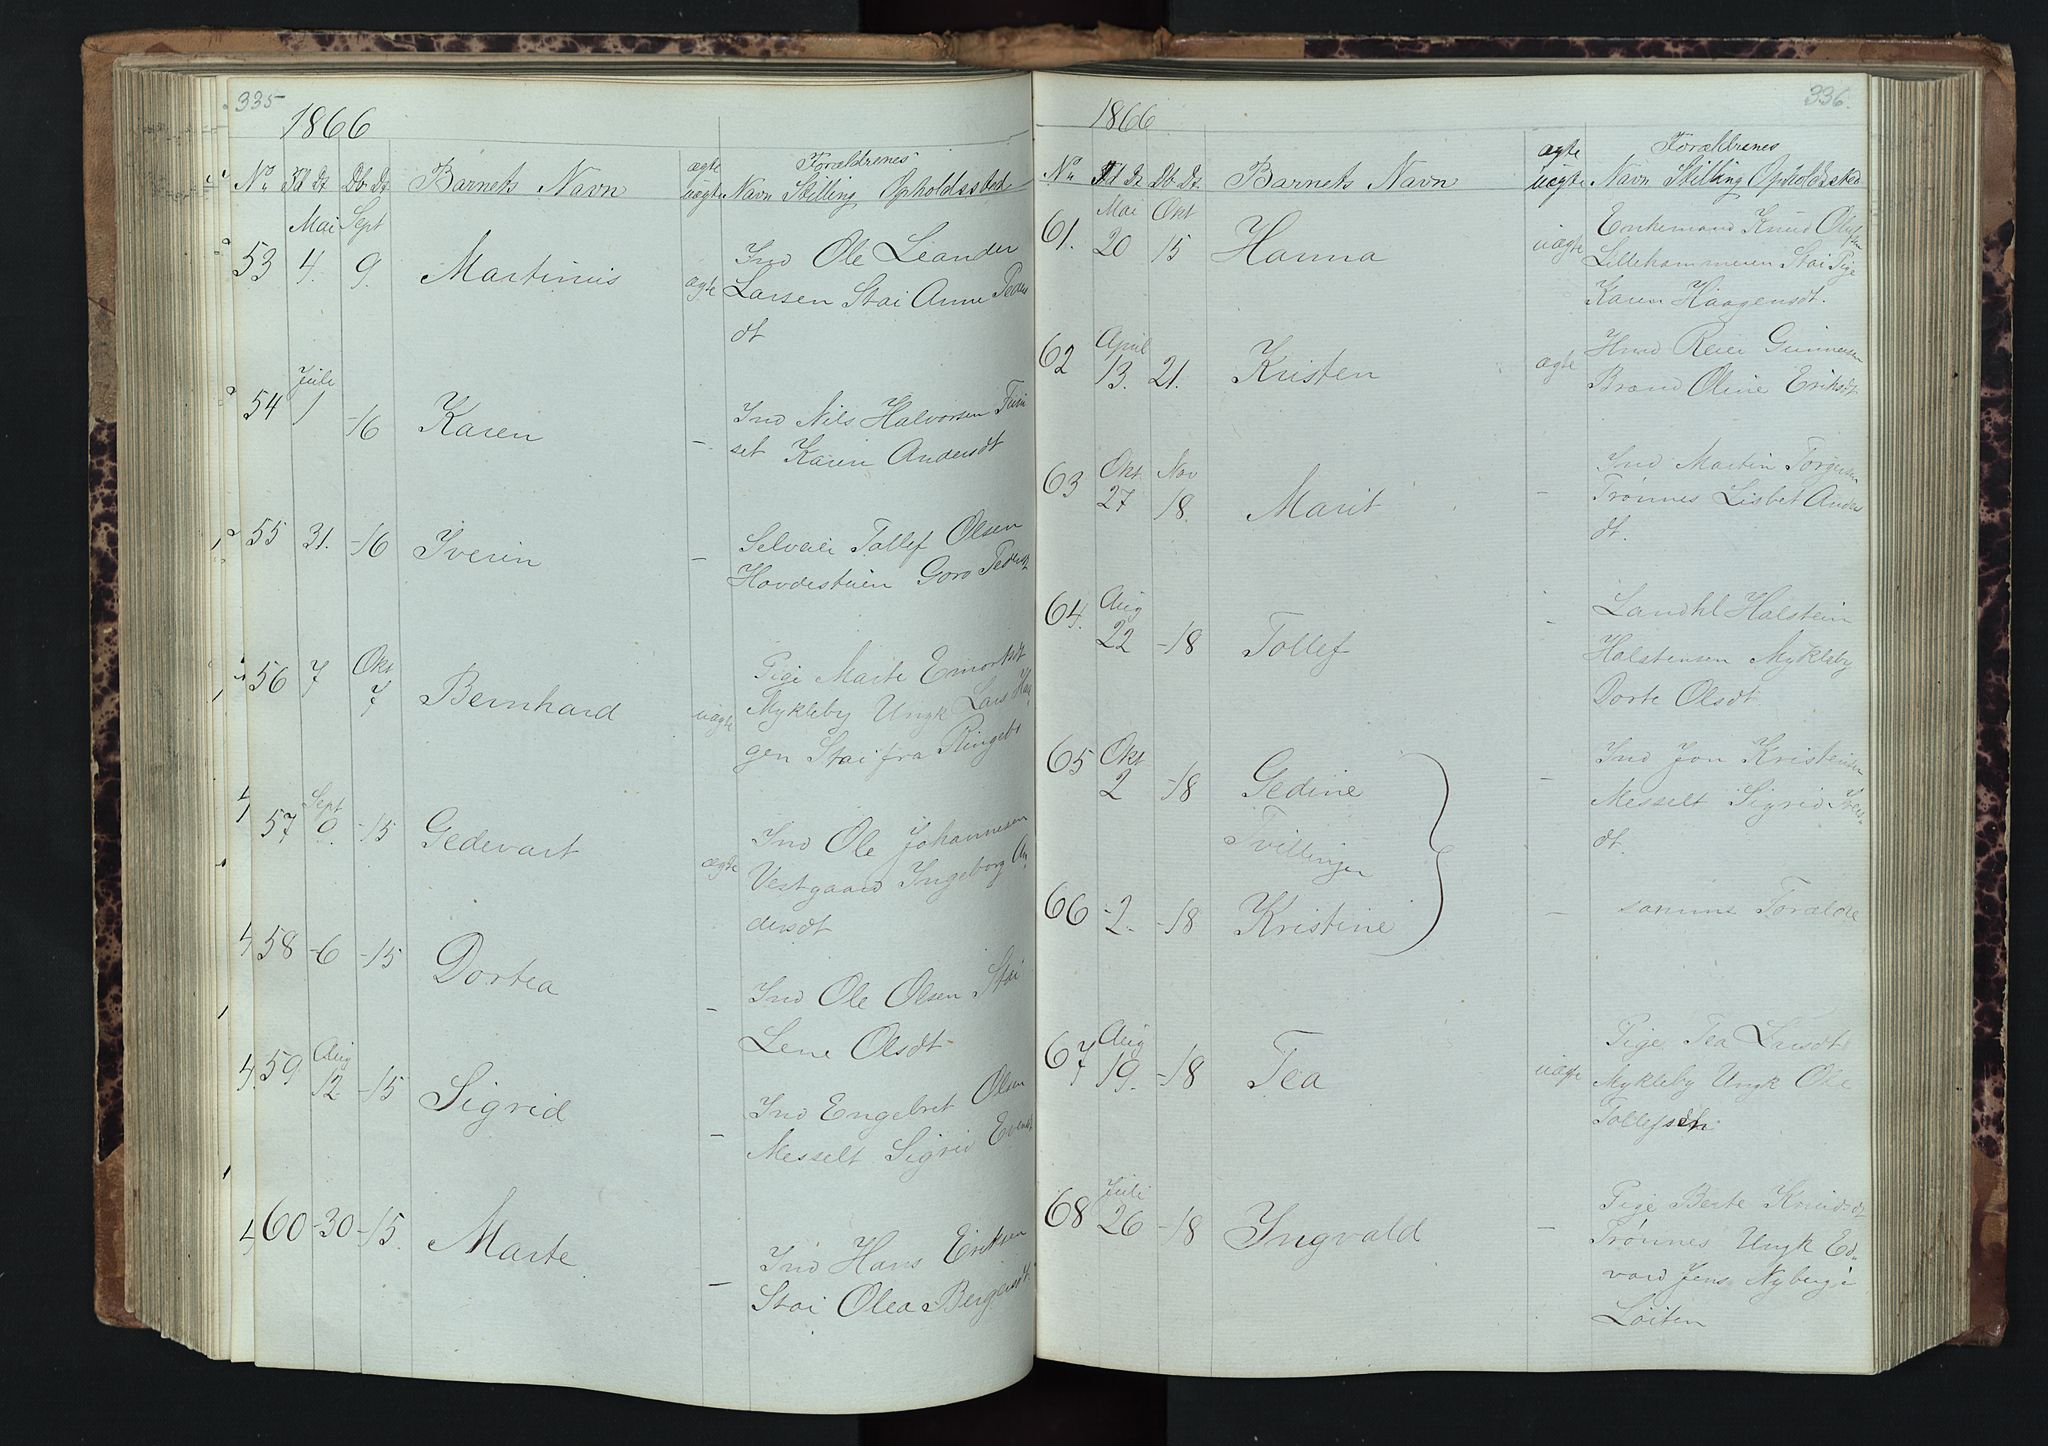 335
1866
Forældrenes
ægte
No Fd Dt Db Dt Barnets Navn uægte Navn Stilling Opholdssted
Mai Sept
53 4. 9. Martinus ægte Ind Ole Leander
Larsen Stai Anne Peders
dt
Juli
54 1 -16 Karen - Ind Nils Halvorsen
set Karen Andersdt
55 31. -16 Iverin - Selveier Tollef Olsen
Hovdestuen Goro Pedersdt
Okt
56 7 7 Bernhard uægte Pige Marte
Mykleby Ungk Lars Haa
gen Stai fra Ringebo
Sept
57 9. -15 Gedevart ægte Ind Ole Johannesen
Vestgaard Ingeborg An
dersdt
58 -6 -15 Dortea - Ind Ole Olsen Stai
Lene Olsdt
Aug
59 12 -15 Sigrid - Ind Engebret Olsen
Messelt Sigrid Evensdt
60 -30 -15. Marte - Ind Hans Eriksen
Stai Olea Bergersdt
336.
1866
Forældrenes
ægte
No Fd Dt Db Dt Barnets Navn uægte Navn Stilling Opholdssted
Mai Okt
61. 20 15 Hanna uægte Enkemand Knud Olufsen
Lillehammeren Stai Pige
Karen Haagensdt.
April
62 13. 21. Kristen ægte Husd Reier Gunnersen
Brænd Oline Eriksdt
Okt Nov
63 27 18. Marit - Ind Martin Torgersen
Trønnes Lisbet Anders
dt.
Aug
64. 22 -18 Tollef - Landhl Halstein
Halstensen Mykleby
Dorte Olsdt
Okt
65 2 -18 Gedine - Ind Jon Kristensen
Messelt Sigrid Ivers-
dt.
Tvillinger
66 -2. -18 Kristine - samme Forældre
Aug
67 19. -18 Tea uægte Pige Tea Larsdt
Mykleby Ungk Ole
Tollefsen
Juli
68 26 -18 Ingvald - Pige Berte Knudsdt
Trønnes Ungk Ed-
vard Jens Nyberg i
Løiten